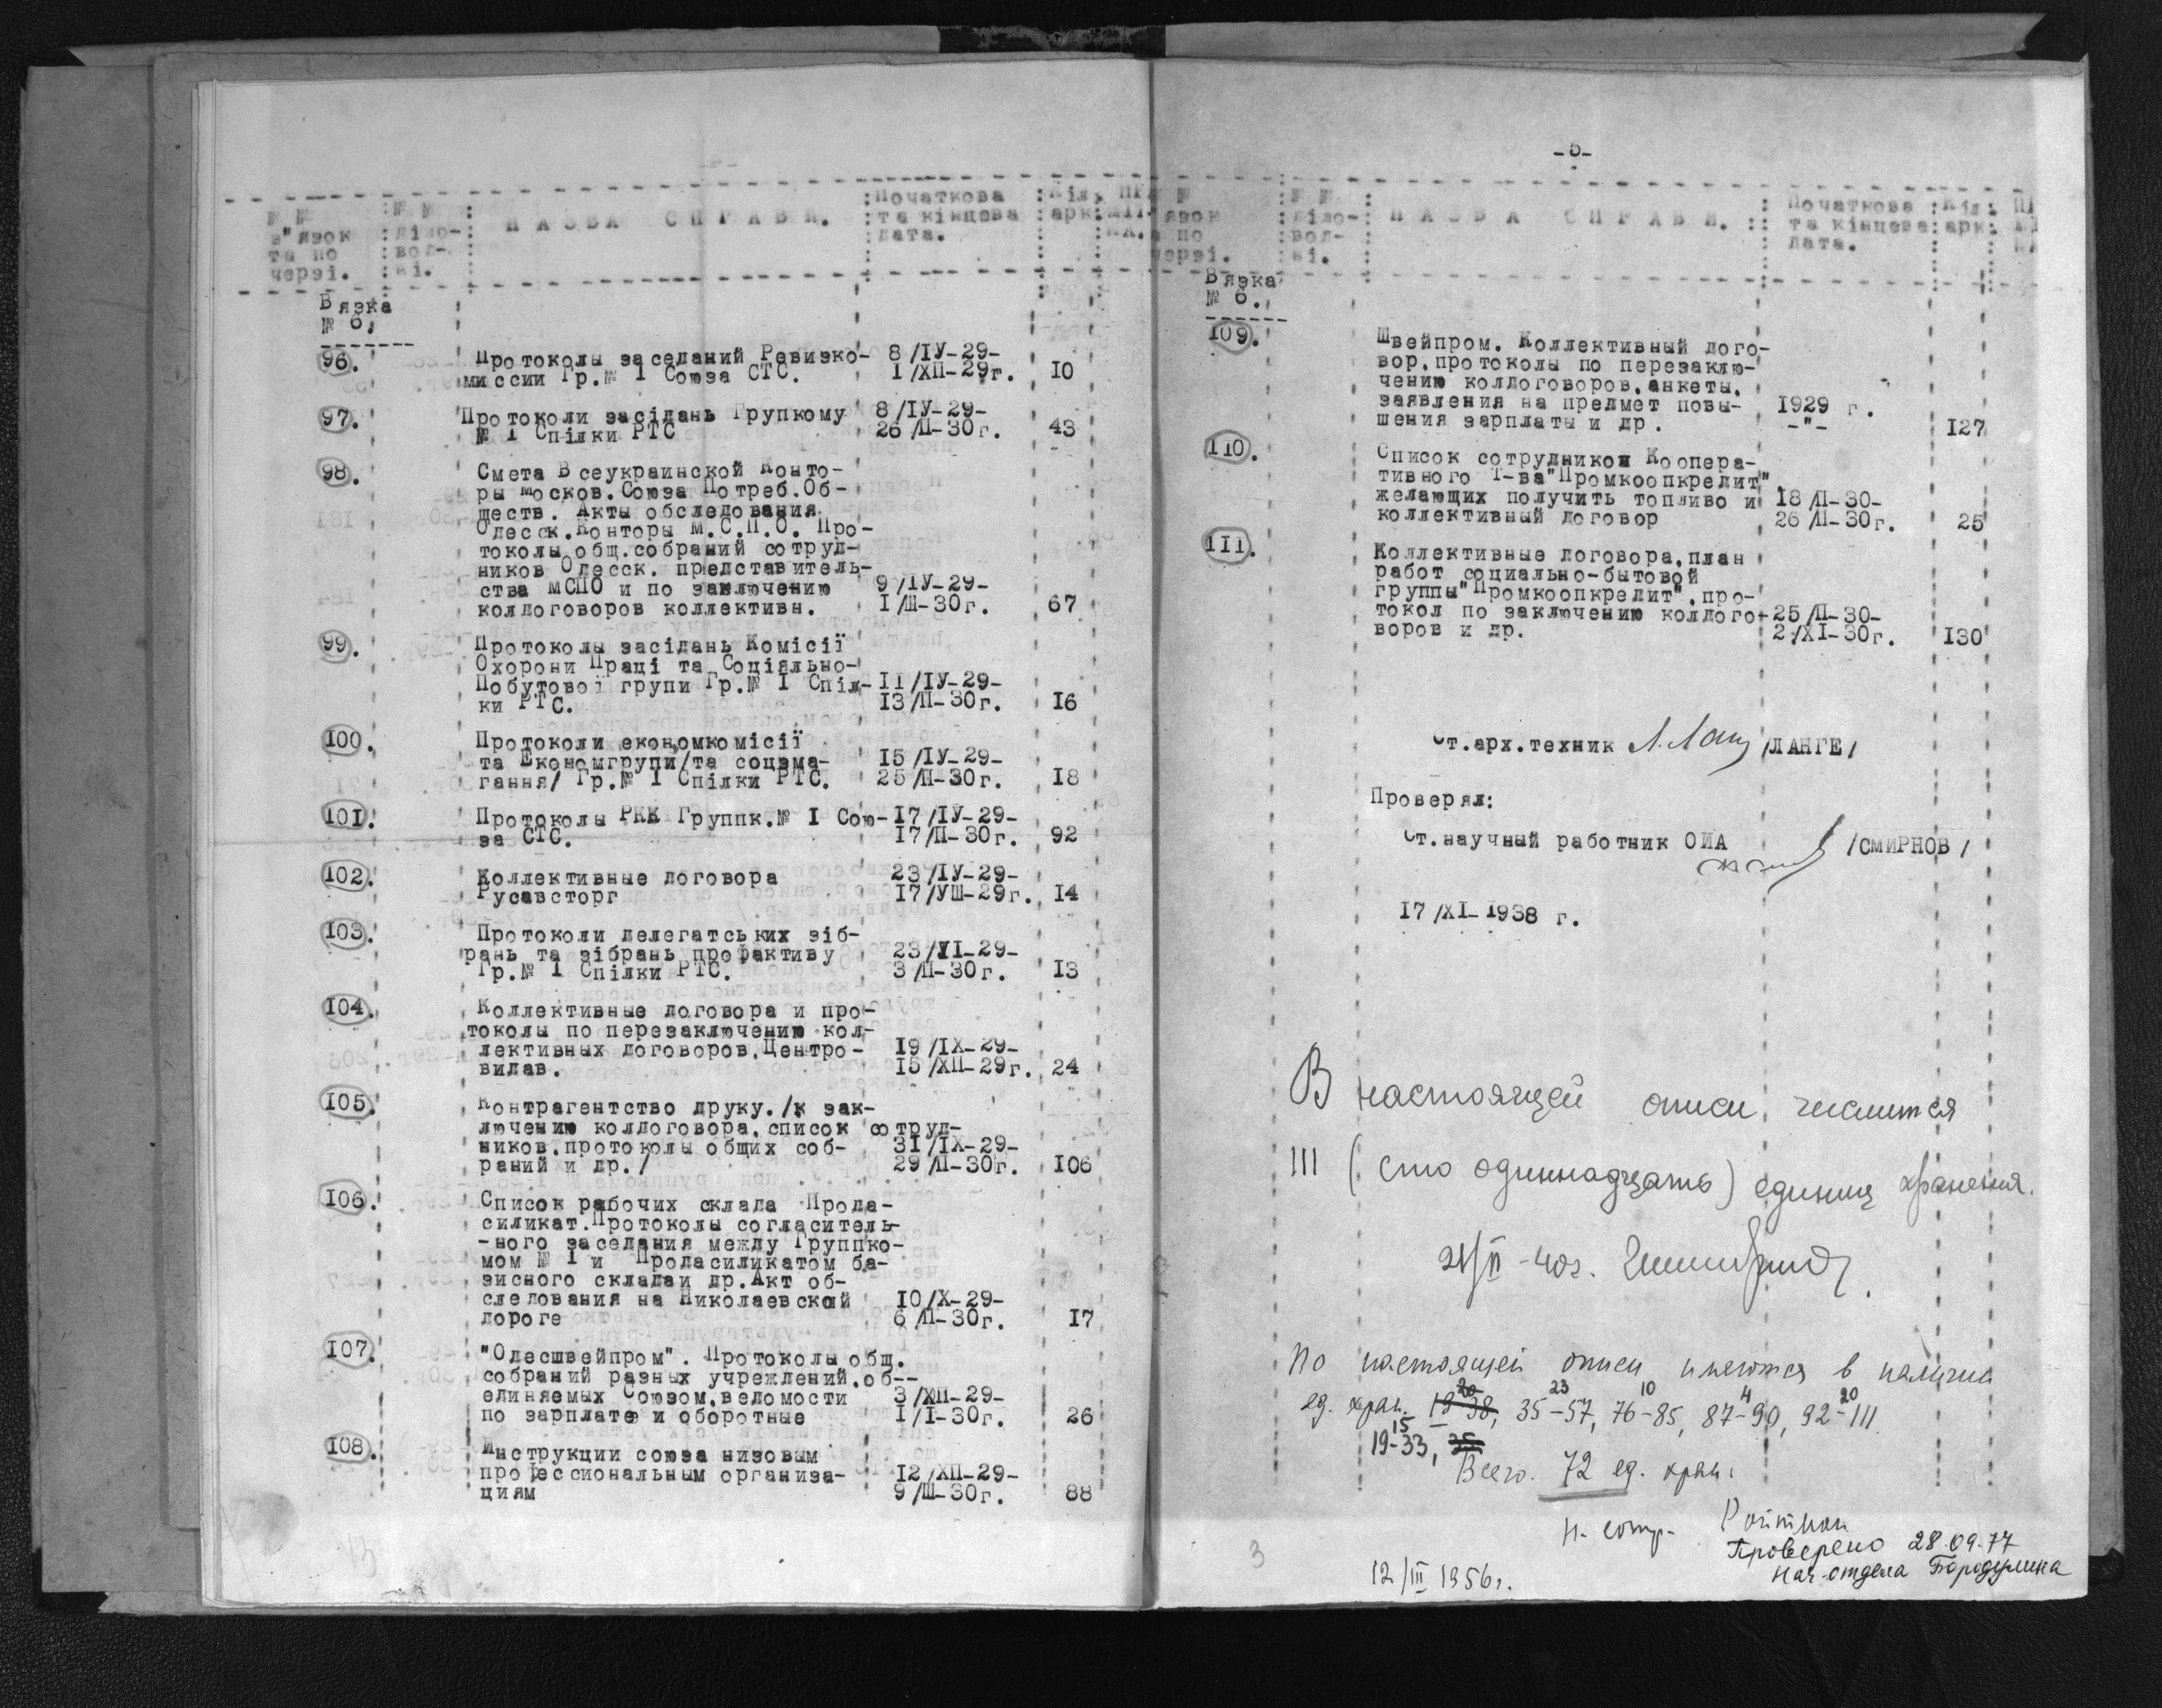 № № в"язок та по черзі. № № діло-вод-ві. НАЗВА СПРАВИ. Початкова та кінцева дата. Кіл. арк.
Вязка
№ 6.
96. Протоколы заседаний Ревизко- 8/ІУ-29-
миссии Гр.№ І Союза СТС. І/ХП-29г. І0
97. Протоколи засідань Групкому 8/ІУ-29-
№ І Спілки РТС 26/П-30г. 43
98. Смета Всеукраинской Конто-
ры Москов.Союза Потреб.Об-
ществ. Акты обследования
Одесск.Конторы М.С.П.О. Про-
токолы общ.собраний сотруд-
ников Одесск. представитель-
ства МСПО и по заключению 9/ІУ-29-
колдоговоров коллективн. І/Ш-30г. 67
99. Протоколы засідань Комісії
Охорони Праці та Соціяльно-
Побутової групи Гр.№ І Спіл- ІІ/ІУ-29-
ки РТС. І3/П-30г. І6
І00. Протоколи економкомісії
та Економгрупи/та соцзма- І5/ІУ-29-
гання/ Гр.№ І Спілки РТС. 25/П-30г. І8
І0І. Протоколы РКК Группк.№ І Сою- І7/ІУ-29-
за СТС. І7/П-30г. 92
І02. Коллективные договора 23/ІУ-29-
Русавсторг І7/УШ-29г. І4
І03. Протоколи делегатських зіб-
рань та зібрань профактиву 23/УІ-29-
Гр.№ І Спілки РТС. 3/П-30г. І3
І04. Коллективные договора и про-
токолы по перезаключению кол-
лективных договоров.Центро- І9/ІХ-29-
видав. І5/ХП-29г. 24
І05. Контрагентство друку./к зак-
лючению колдоговора,список сотруд-
ников,протоколы общих соб- 3І/ІХ-29-
раний и др./ 29/П-30г. І06
І06. Список рабочих склада Прода-
силикат.Протоколы согласитель-
-ного заседания между Группко-
мом № І и Продасиликатом ба-
зисного складаи др.Акт об-
следования на Николаевской І0/Х-29-
дороге 6/П-30г. І7
І07. "Одесшвейпром". Протоколы общ.
собраний разных учреждений,об--
единяемых Союзом,ведомости 3/ХП-29-
по зарплате и оборотные І/І-30г. 26
І08. Инструкции союза низовым
профессиональным организа- І2/ХП-29-
циям 9/Ш-30г. 88
-5-
№ язок а по черзі. № № діло-вод-ві. НАЗВА СПРАВИ. Початкова та кінцева дата. Кіл. арк.
Вязка
№ 6.
І09. Швейпром. Коллективный дого-
вор,протоколы по перезаклю-
чению колдоговоров,анкеты,
заявления на предмет повы- І929 г.
шения зарплаты и др. -"- І27
ІІ0. Список сотрудников Коопера-
тивного Т-ва"Промкоопкредит"
желающих получить топливо и І8/П-30-
коллективный договор 26/П-30г. 25
ІІІ. Коллективные договора,план
работ социально-бытовой
группы"Промкоопкредит",про-
токол по заключению колдого- 25/П-30-
воров и др. 2/ХІ-30г. І30
Ст.арх.техник /ЛАНГЕ/
Проверял:
Ст.научный работник ОИА /СМИРНОВ/
І7/ХІ-І938 г.
В настоящей описи числится
111 (сто одиннадцать) единиц хранения.
21/II-40г.
По настоящей описи имеются в наличии
20 23 10 4 20
ед. хран. 19-38, 35-57, 76-85, 87-90, 92-111
15
19-33, 35
Всего. 72 ед. хран.
н. сотр. Ройтман
Проверено 28.09.77
Нач. отдела Бородулина
12/III 1956г.
3